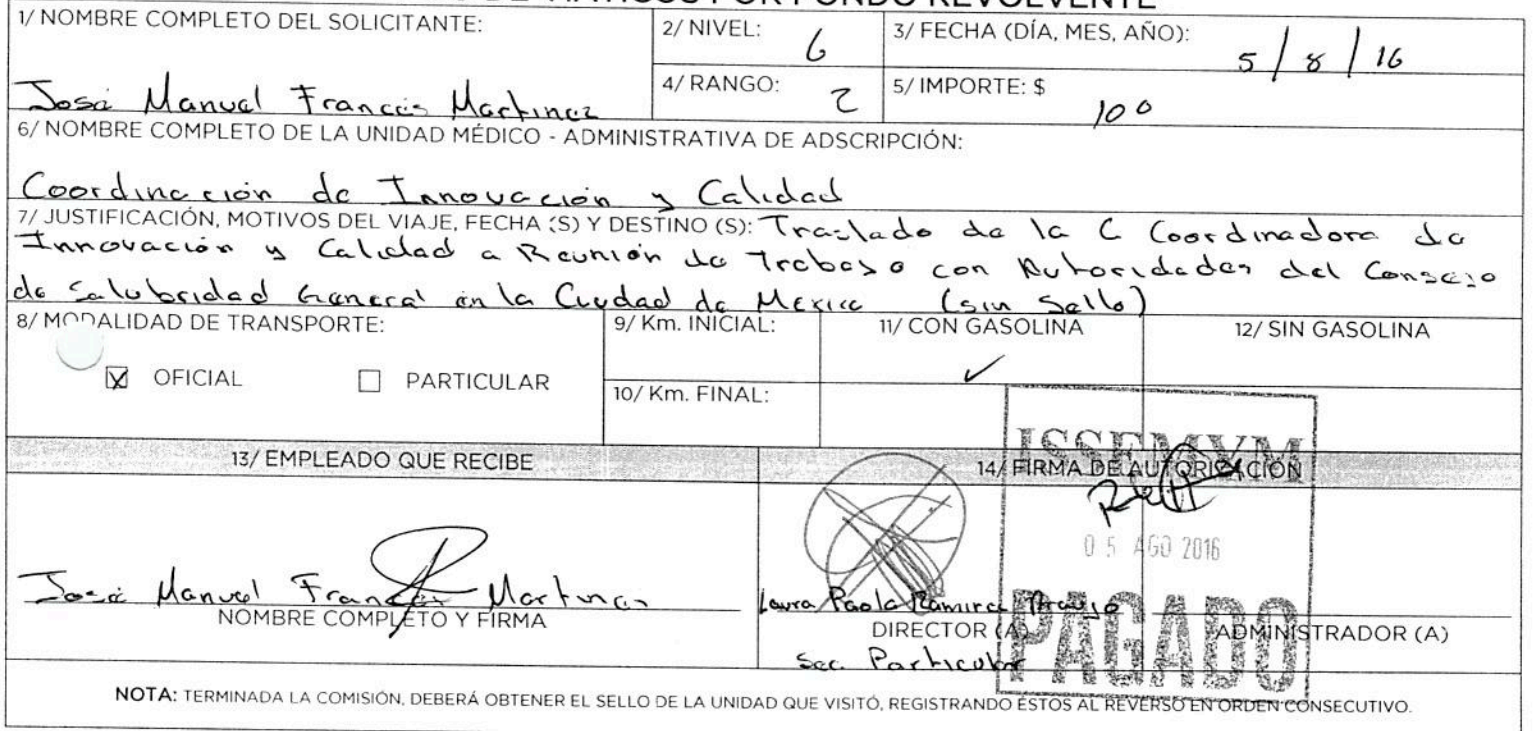 DE VIÁTICOS POR FONDO REVOLVENTE
1/ NOMBRE COMPLETO DEL SOLICITANTE:
José Manuel Francés Martínez
2/ NIVEL: 6
3/ FECHA (DÍA, MES, AÑO): 5 / 8 / 16
4/ RANGO: 2
5/ IMPORTE: $ 100
6/ NOMBRE COMPLETO DE LA UNIDAD MÉDICO - ADMINISTRATIVA DE ADSCRIPCIÓN:
Coordinación de Innovación y Calidad
7/ JUSTIFICACIÓN, MOTIVOS DEL VIAJE, FECHA (S) Y DESTINO (S): Traslado de la C Coordinadora de
Innovación y Calidad a Reunión de Trabajo con Autoridades del Consejo
de Salubridad General en la Ciudad de Mexico (sin Sello)
8/ MODALIDAD DE TRANSPORTE:
OFICIAL PARTICULAR
9/ Km. INICIAL:
10/ Km. FINAL:
11/ CON GASOLINA
✓
12/ SIN GASOLINA
13/ EMPLEADO QUE RECIBE
José Manuel Francés Martínez
NOMBRE COMPLETO Y FIRMA
14/ FIRMA DE AUTORIZACIÓN
ISSEMYM
05 AGO 2016
PAGADO
Laura Paola Ramirez Araujo
DIRECTOR (A)
Sec. Particular
ADMINISTRADOR (A)
NOTA: TERMINADA LA COMISIÓN, DEBERÁ OBTENER EL SELLO DE LA UNIDAD QUE VISITÓ, REGISTRANDO ÉSTOS AL REVERSO EN ORDEN CONSECUTIVO.